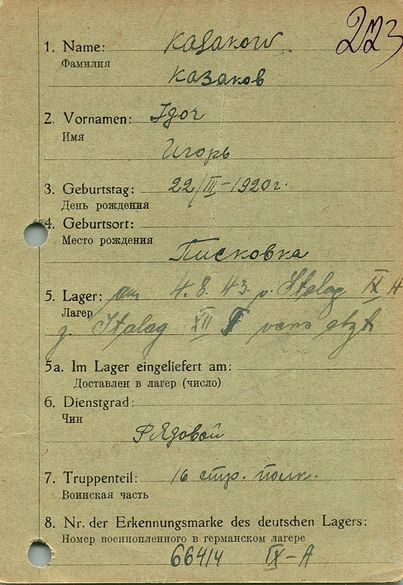 223
1. Name: Kasakow
Фамилия
Казаков
2. Vornamen: Igor
Имя
Игорь
3. Geburtstag: 22/III-1920г.
День рождения
4. Geburtsort:
Место рождения
Писковка
5. Lager: am 4.8.43 v. Stalag IX A
Лагер
z. Stalag XII F versetzt
5a. Im Lager eingeliefert am:
Доставлен в лагер (число)
6. Dienstgrad:
Чин
Рядовой
7. Truppenteil: 16 стр. полк.
Воинская часть
8. Nr. der Erkennungsmarke des deutschen Lagers:
Номер военнопленного в германском лагере
66414 IX-A